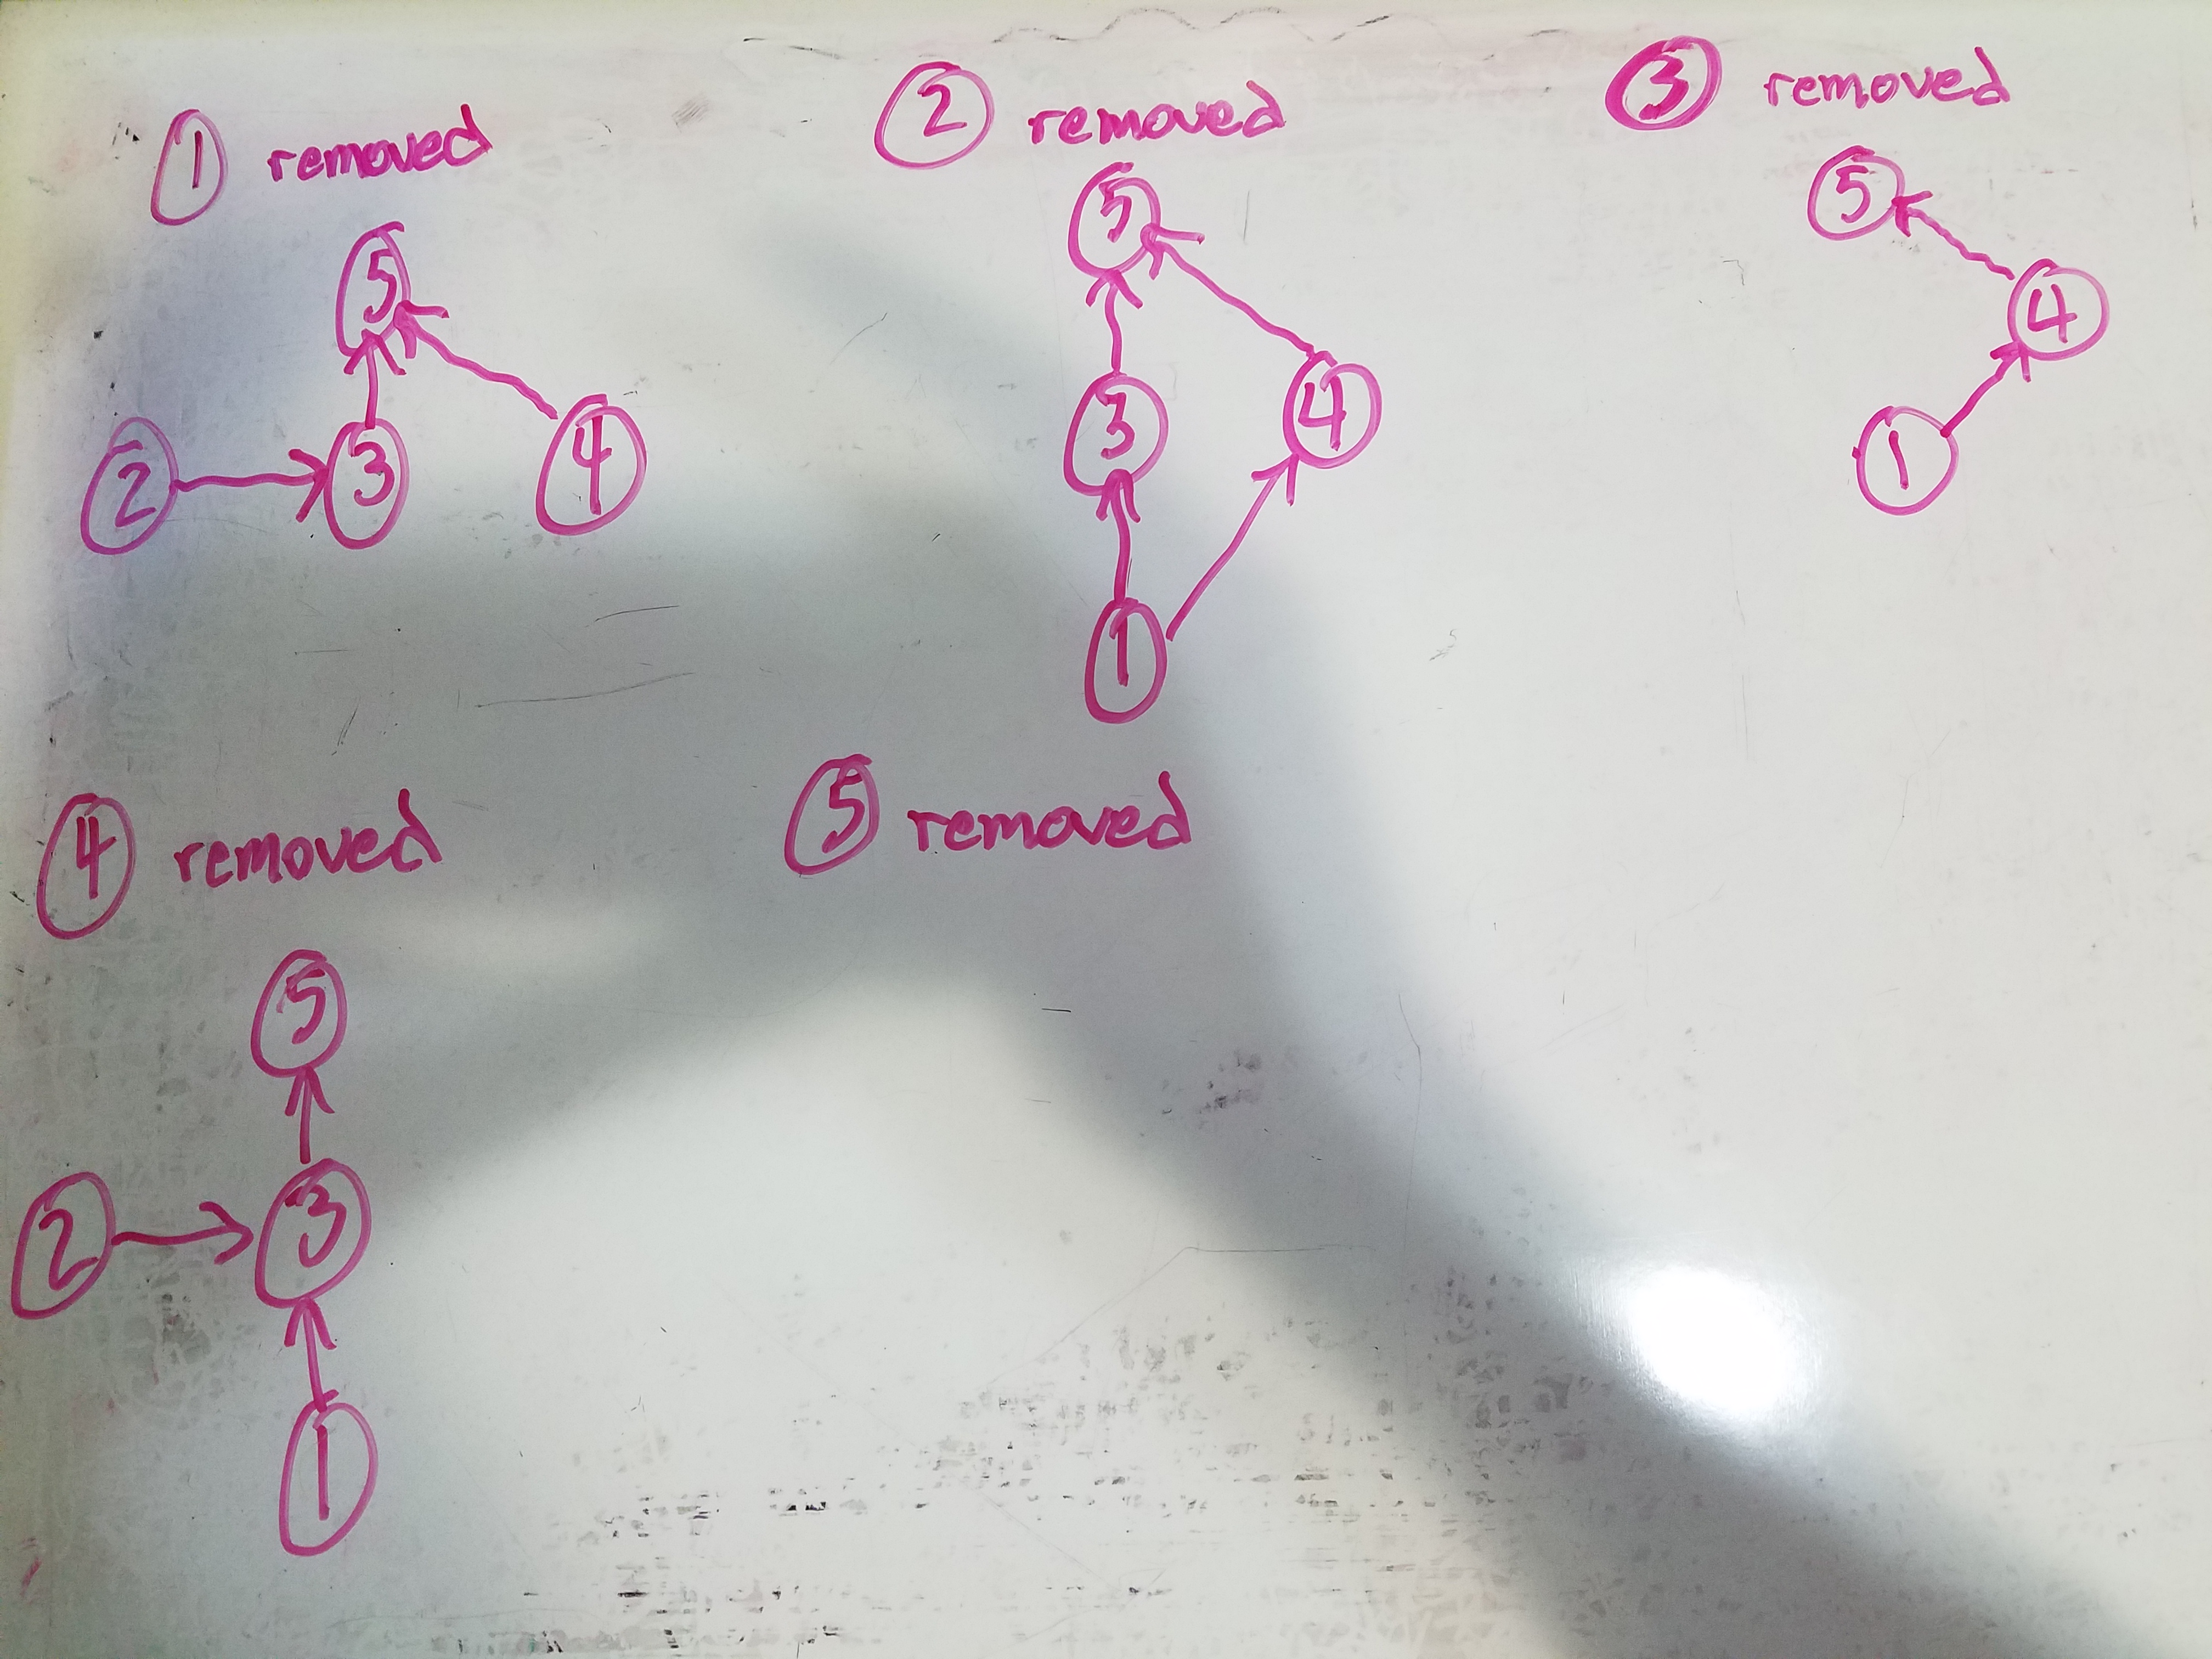 1 removed
5
2 3 4
2 removed
5
3 4
1
3 removed
5
4
1
4 removed
5
2 3
1
5 removed